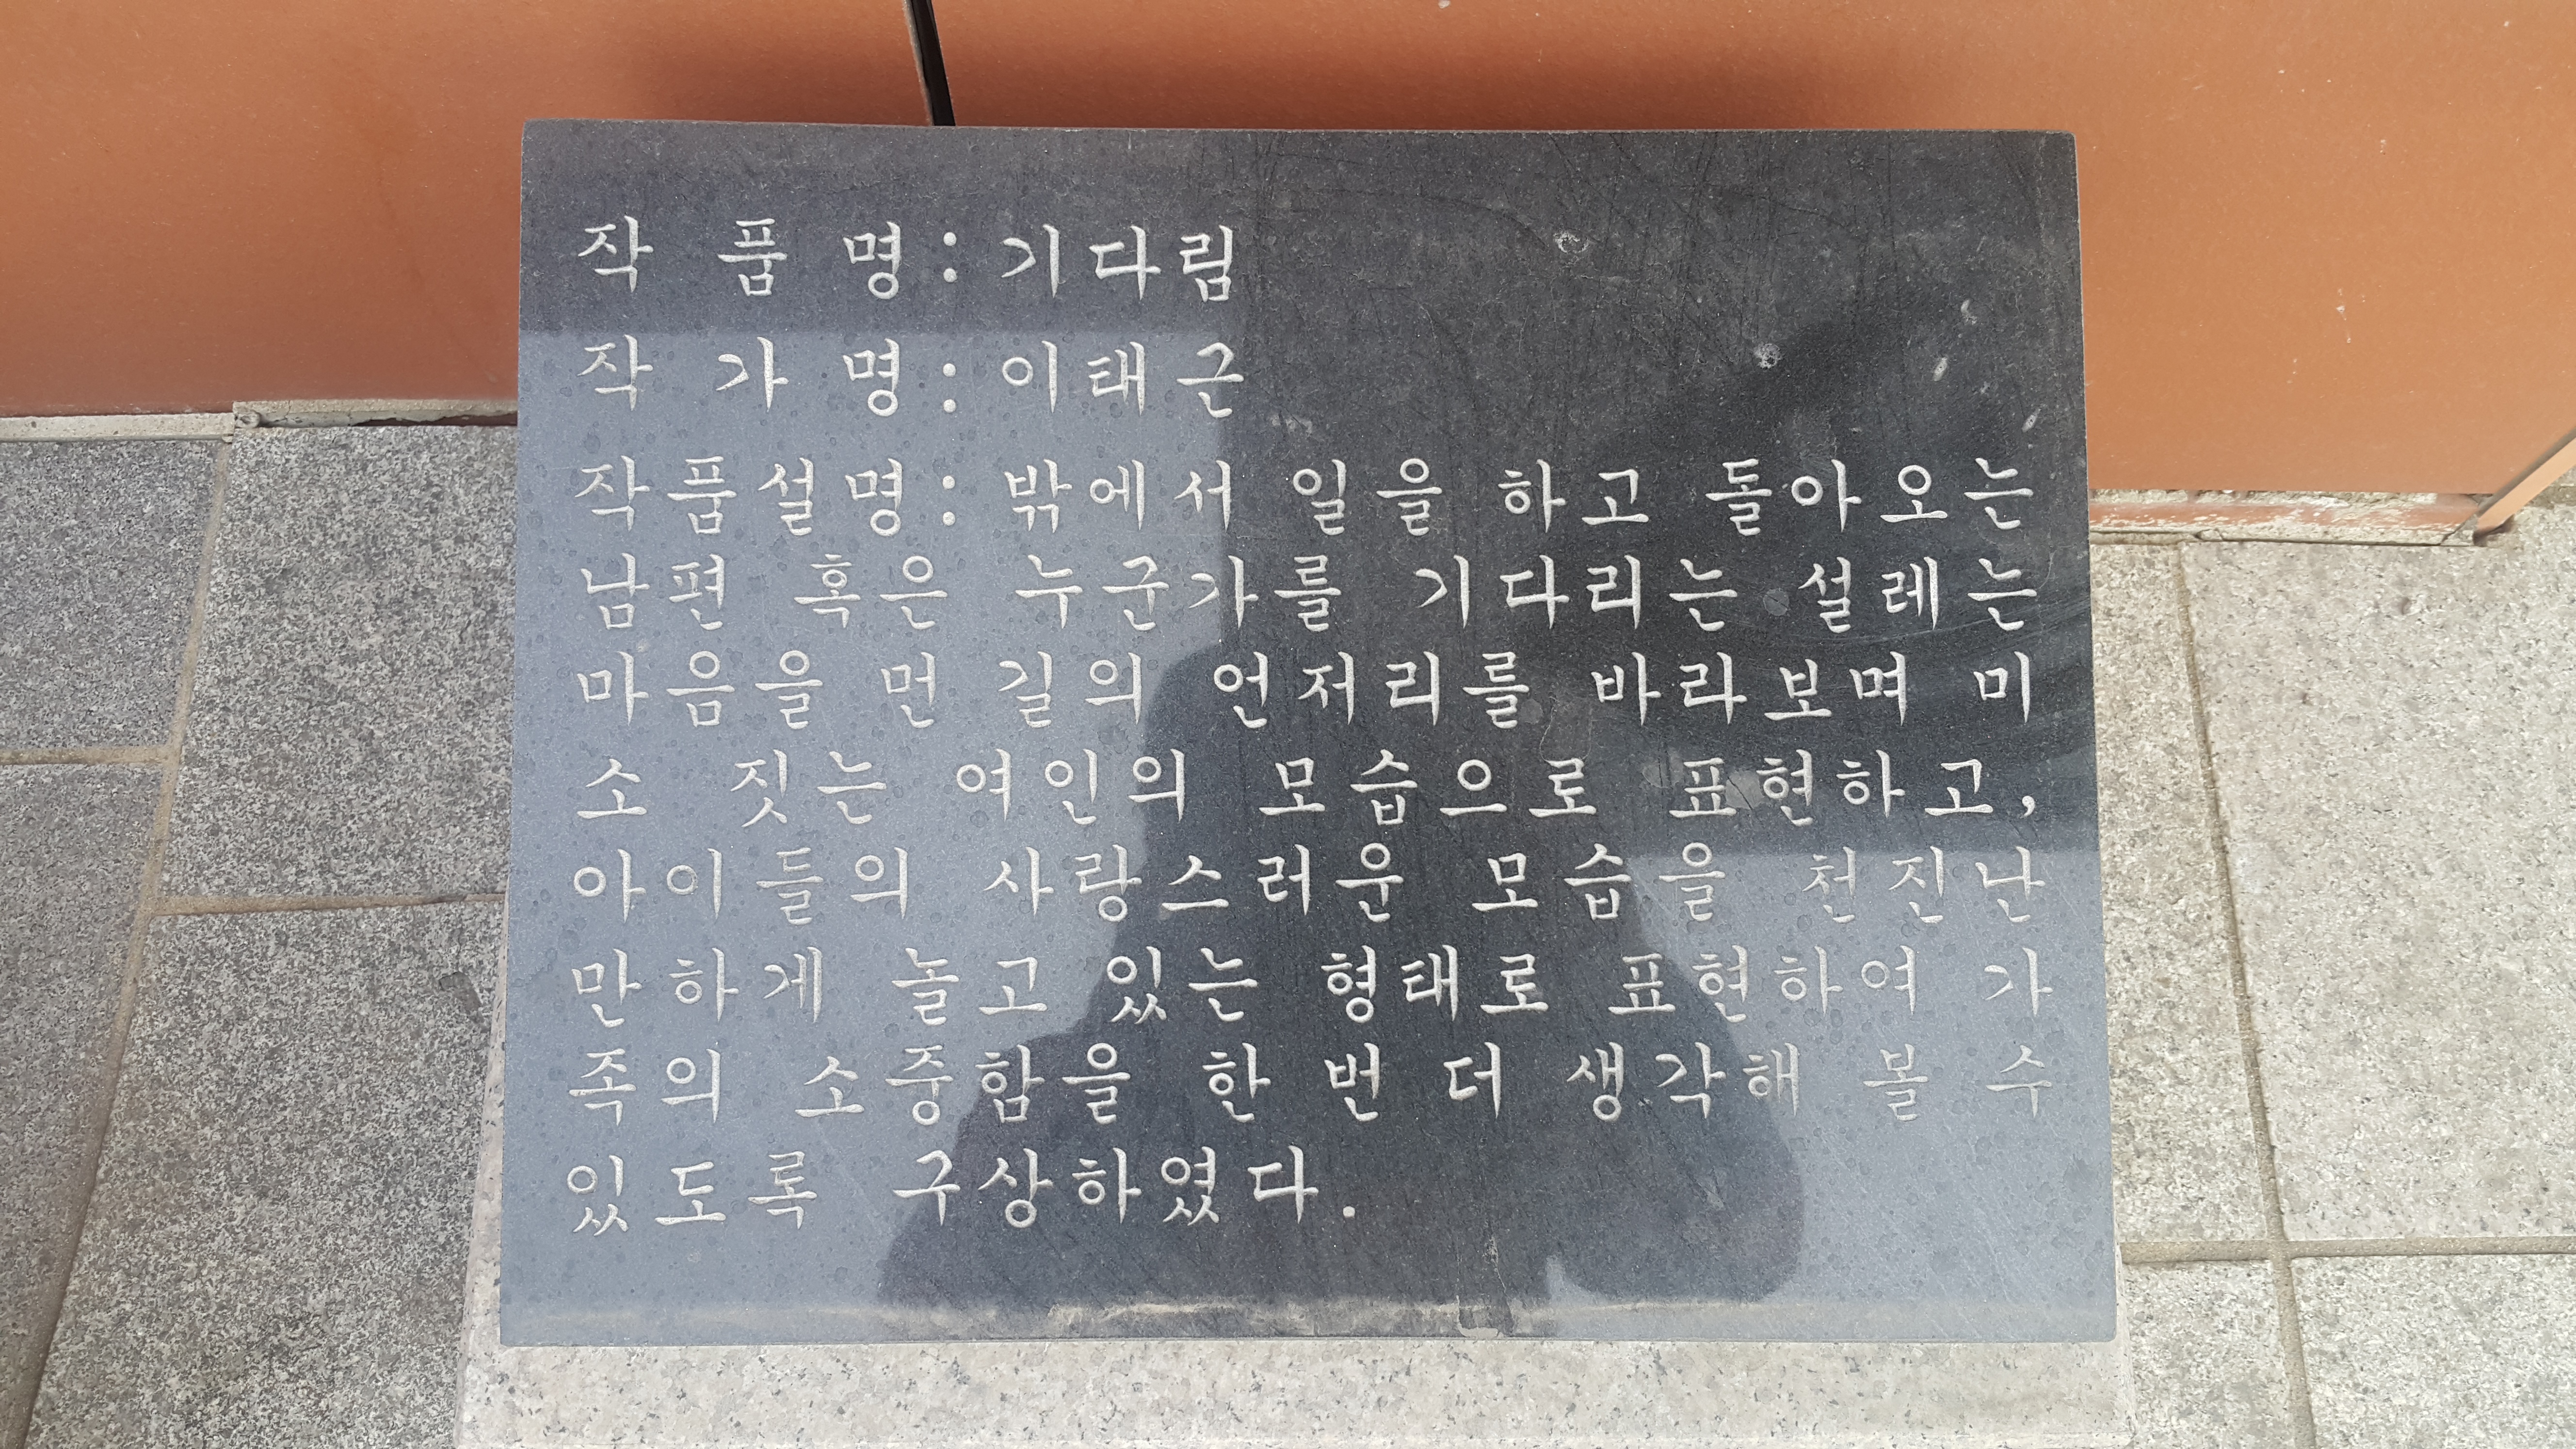 작 품 명 : 기다림
작 가 명 : 이태근
작품설명 : 밖에서 일을 하고 돌아오는
남편 혹은 누군가를 기다리는 설레는
마음을 먼 길의 언저리를 바라보며 미
소 짓는 여인의 모습으로 표현하고,
아이들의 사랑스러운 모습을 천진난
만하게 놀고 있는 형태로 표현하여 가
족의 소중함을 한 번 더 생각해 볼 수
있도록 구상하였다.